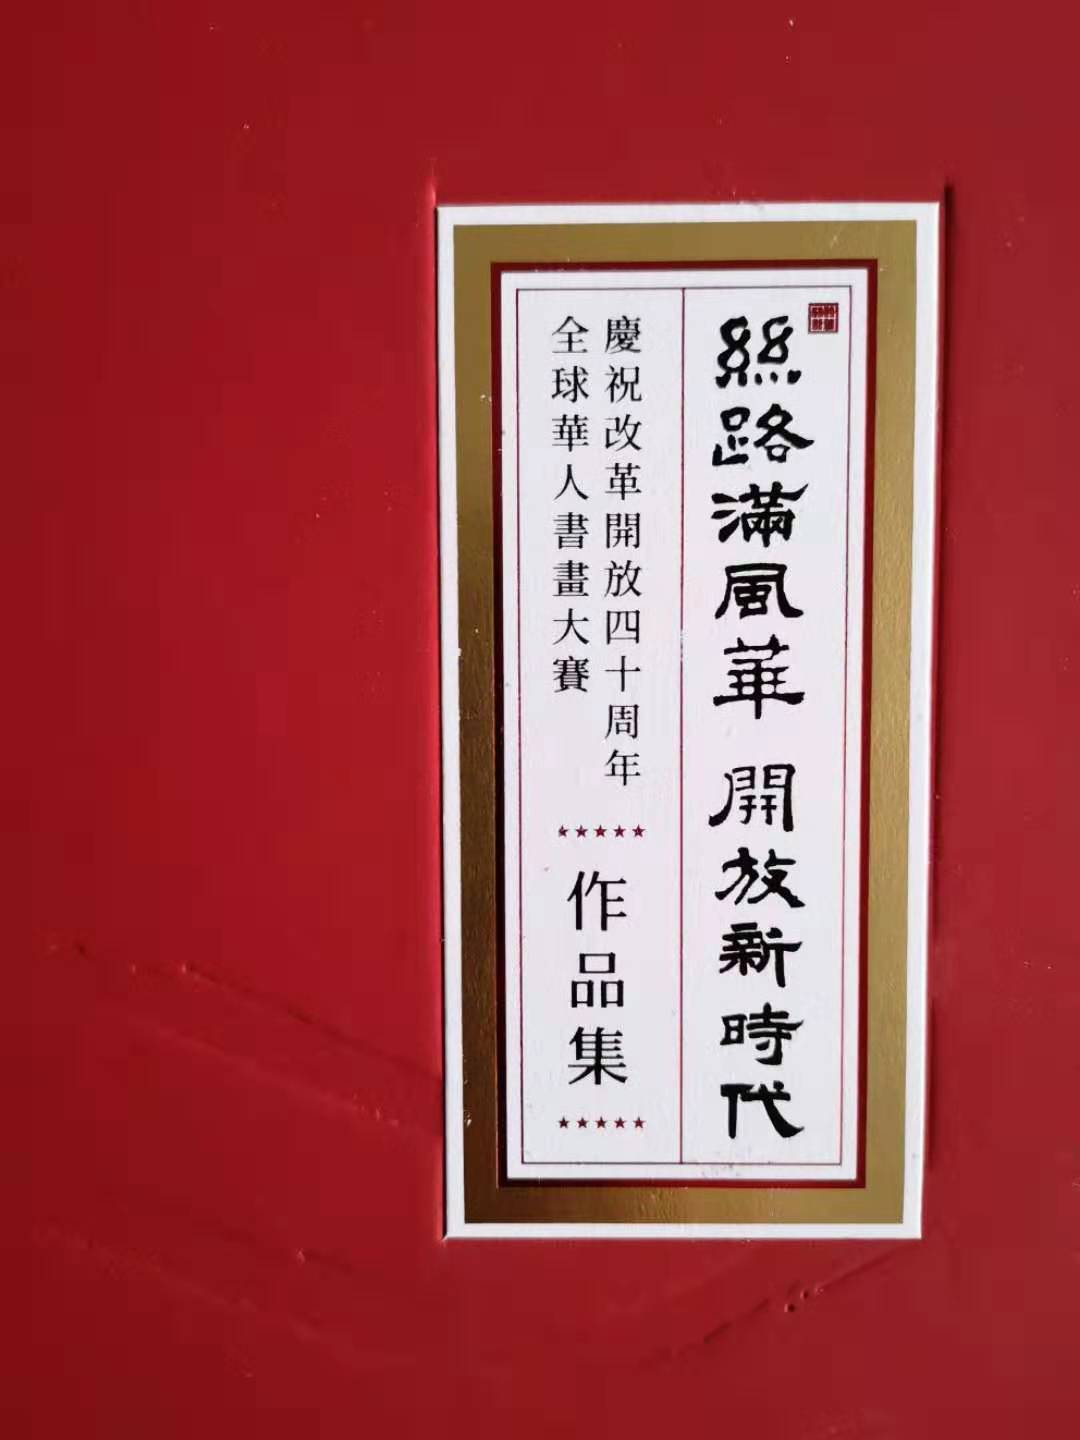 絲路滿風華 開放新時代
慶祝改革開放四十周年
全球華人書畫大賽
作品集